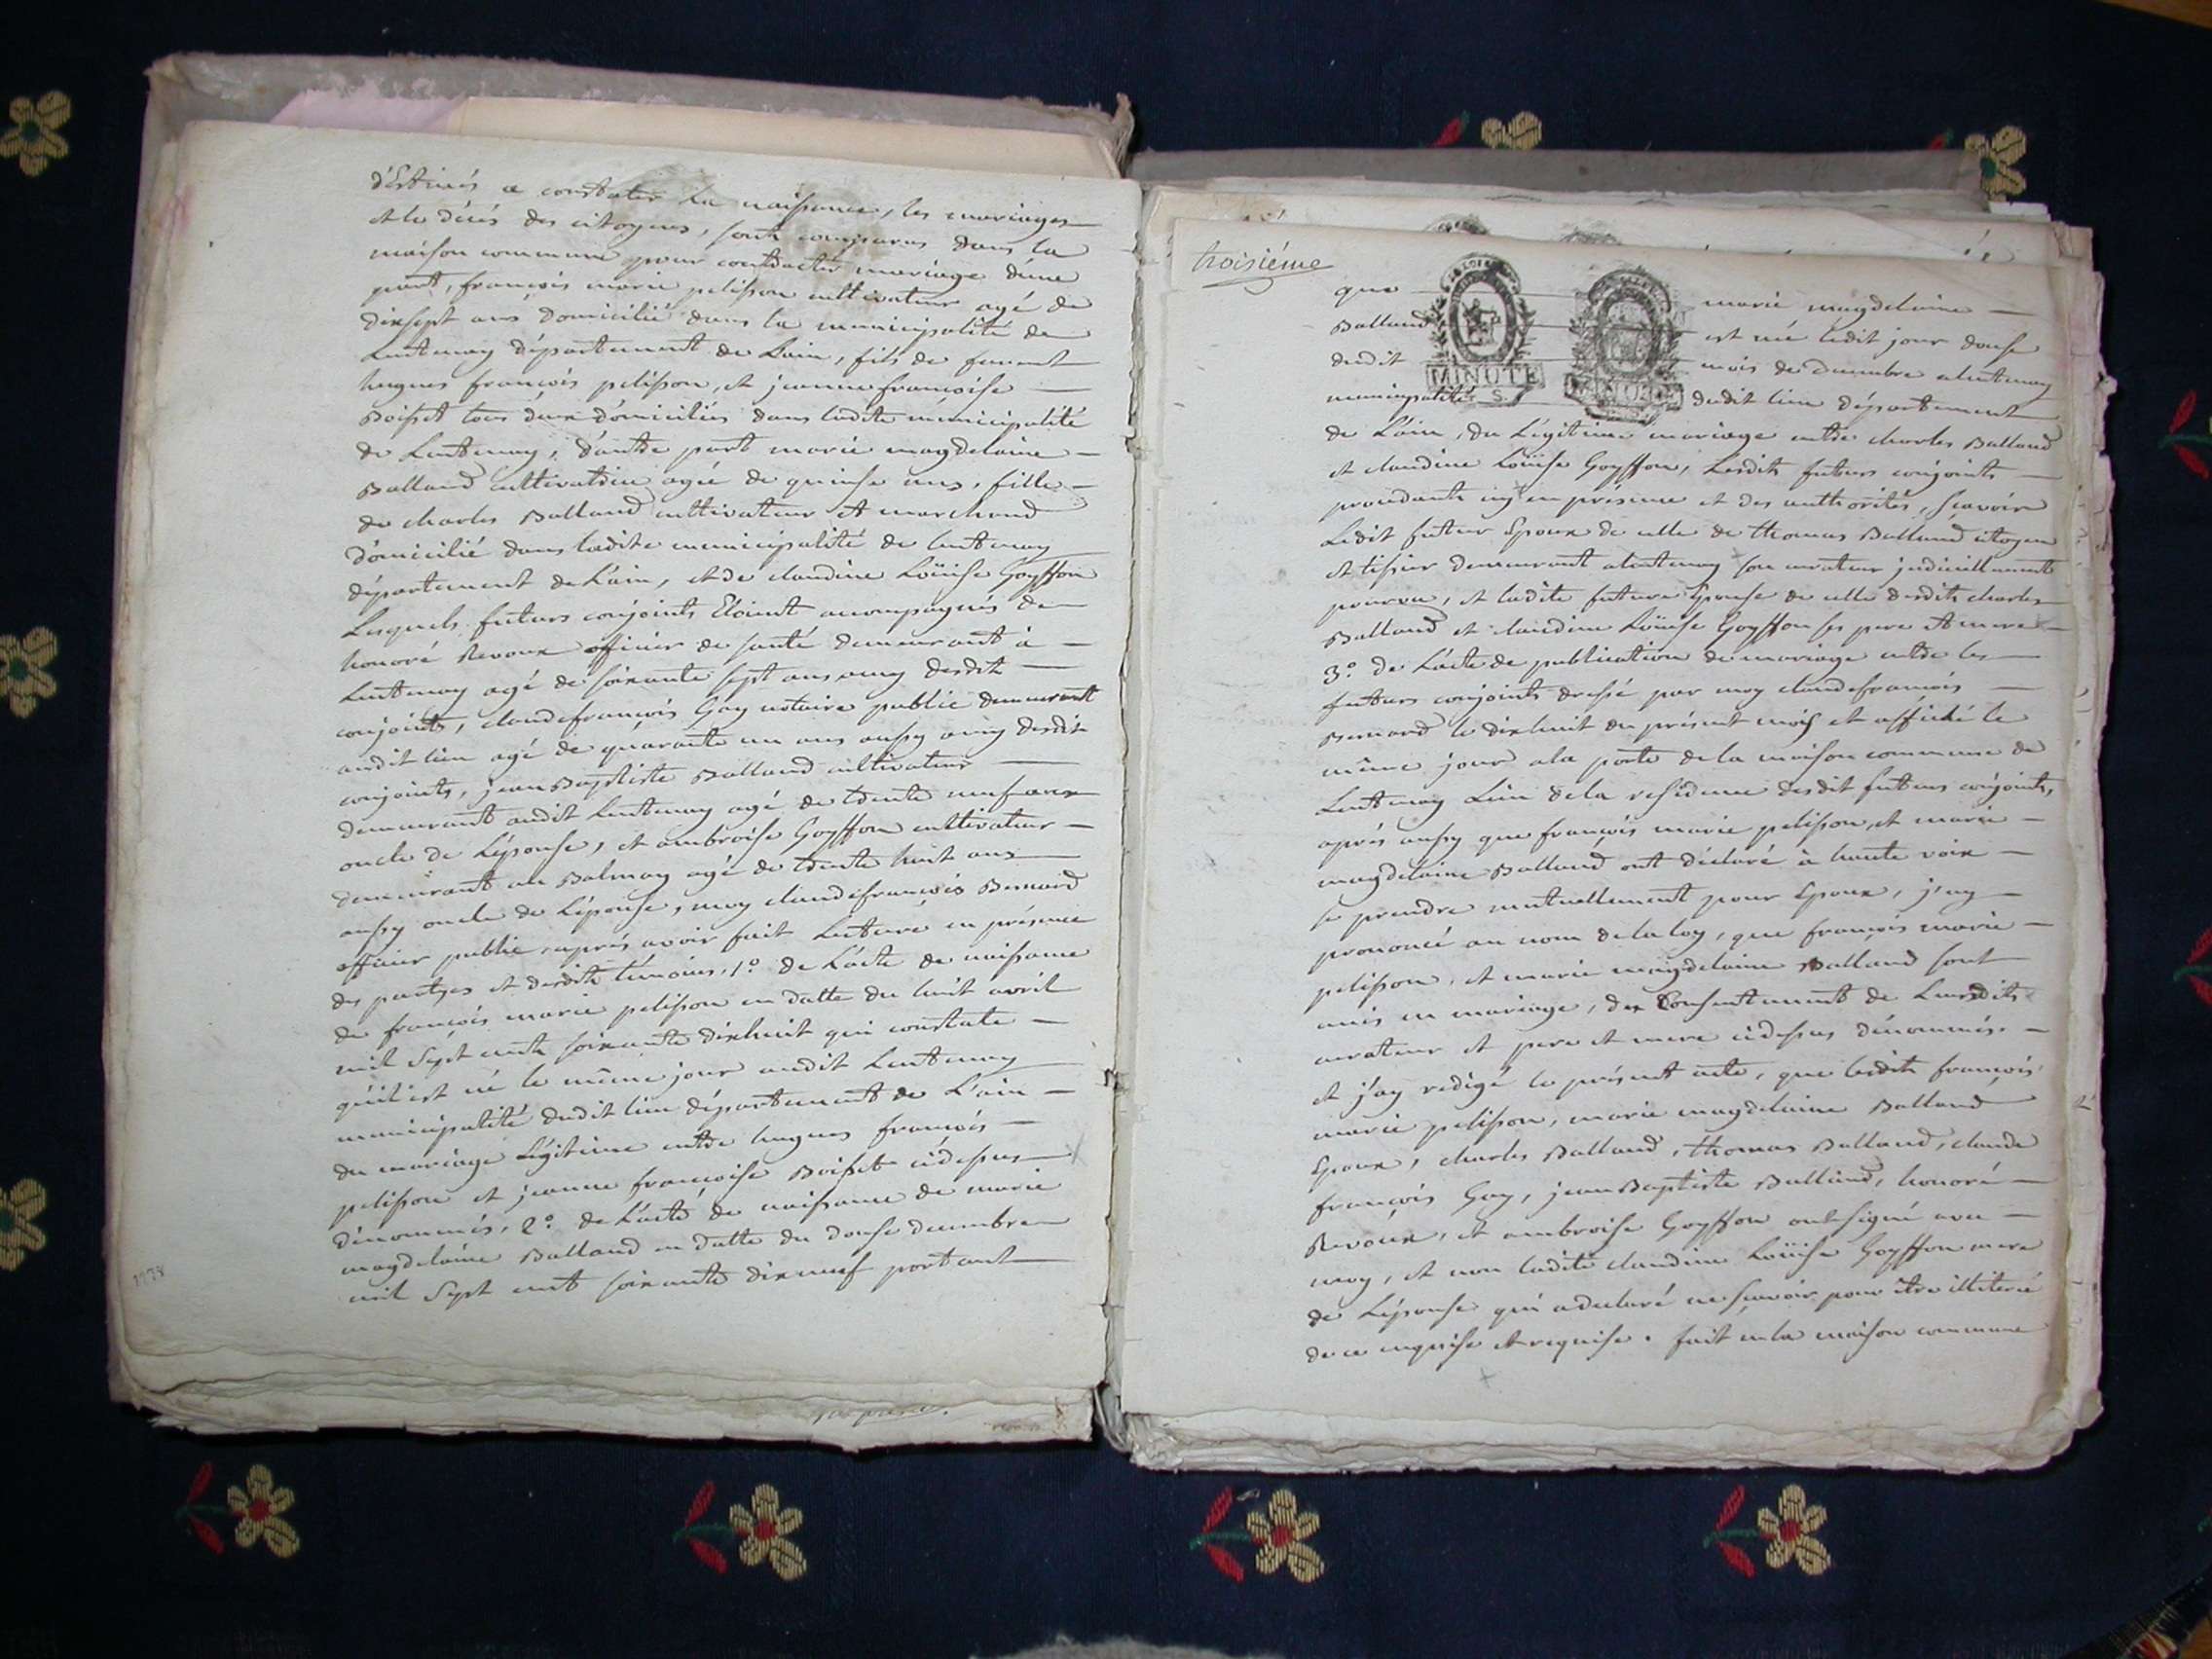 d'Estinés a constater la naissance, les mariages
et le décés des citoyens, sont comparus dans la
maison commune pour contracter mariage d'une
part, françois marie pelisson cultivateur agé de
dixsept ans domicilié dans la municipalité de
Lentenay département de Lain, fils de furent
hugues françois pelisson, et jeanne françoise
Boisset tous deux domiciliés dans ladite municipalité
de Lentenay, d'autre part marie magdelaine
Balland cultivatrice agée de quinse ans, fille
de charles Balland cultivateur et marchand
domicilié dans ladite municipalité de Lentenay
département de L'ain, et de claudine Loüise Goyffon
Lesquels futurs conjoints Etoient acompagnés de
honoré Revoux officier de santé demeurant à
Lentenay agé de soixante sept ans, amy desdit
conjoints, claudefrançois Gay notaire public demeurant
audit lieu agé de quarante un ans aussy amy desdit
conjoints, jean Baptiste Balland cultivateur
demeurant audit Lentenay agé de trente neuf ans
oncle de L'épouse, et ambroise Goyffon cultivateur
demeurant au Balmay agé de trente huit ans
aussy oncle de L'épouse, moy claudefrançois Bernard
officier public, aprés avoir fait Lecture en présence
des partyes et desdits témoins, 1.° de L'acte de naissance
de françois marie pelisson en datte du huit avril
mil sept cent soixante dixhuit qui constate
qu'il est né le même jour audit Lentenay
municipalité dudit lieu département de L'ain
du mariage Légitime entre hugues françois
pelisson et jeanne françoise Boisset cidessus
dénommés, 2.° de L'acte de naissance de marie
magdelaine Balland en datte du douse decembre
mil sept cent soixante dixneuf portant
1778
troisiéme
que marie magdelaine
Balland est née ledit jour douse
dudit mois de decembre a Lentenay
municipalité dudit lieu département
MINUTE
MINUTE
S.
de L'ain, du Légitime mariage entre charles Balland
et claudine Loüise Goyffon, Lesdits futurs conjoints
procedants icy en présence et des authorités, sçavoir
Ledit futur Epoux de celle de thomas Balland citoyen
et tissier demeurant a Lentenay son curateur judiciellement
pourvu, et ladite future Epouse de celle desdits charles
Balland et claudine Loüise Goyffon ses pere et mere
3.° de L'acte de publication de mariage entre les
futurs conjoints dressé par moy claudefrançois
Bernard le dixhuit du présent mois et affiché le
même jour a la porte de la maison commune de
Lentenay Lieu de la residence desdit futurs conjoints,
aprés aussy que françois marie pelisson, et marie
magdelaine Balland ont déclaré à haute voix
se prendre mutuellement pour Epoux, j'ay
prononcé au nom de la loy, que françois marie
pelisson, et marie magdelaine Balland sont
unis en mariage, du Consentement de Leursdits
curateur et pere et mere cidessus dénommés.
et j'ay redigé le présent acte, que lesdits françois
marie pelisson, marie magdelaine Balland
Epoux, charles Balland, thomas Balland, claude
françois Gay, jean Baptiste Balland, honoré
Revoux, et ambroise Goyffon ont signé avec
moy, et non ladite claudine Loüise Goyffon mere
de L'épouse qui a declaré ne sçavoir pour être illiterée
de ce enquise et requise. fait en la maison commune